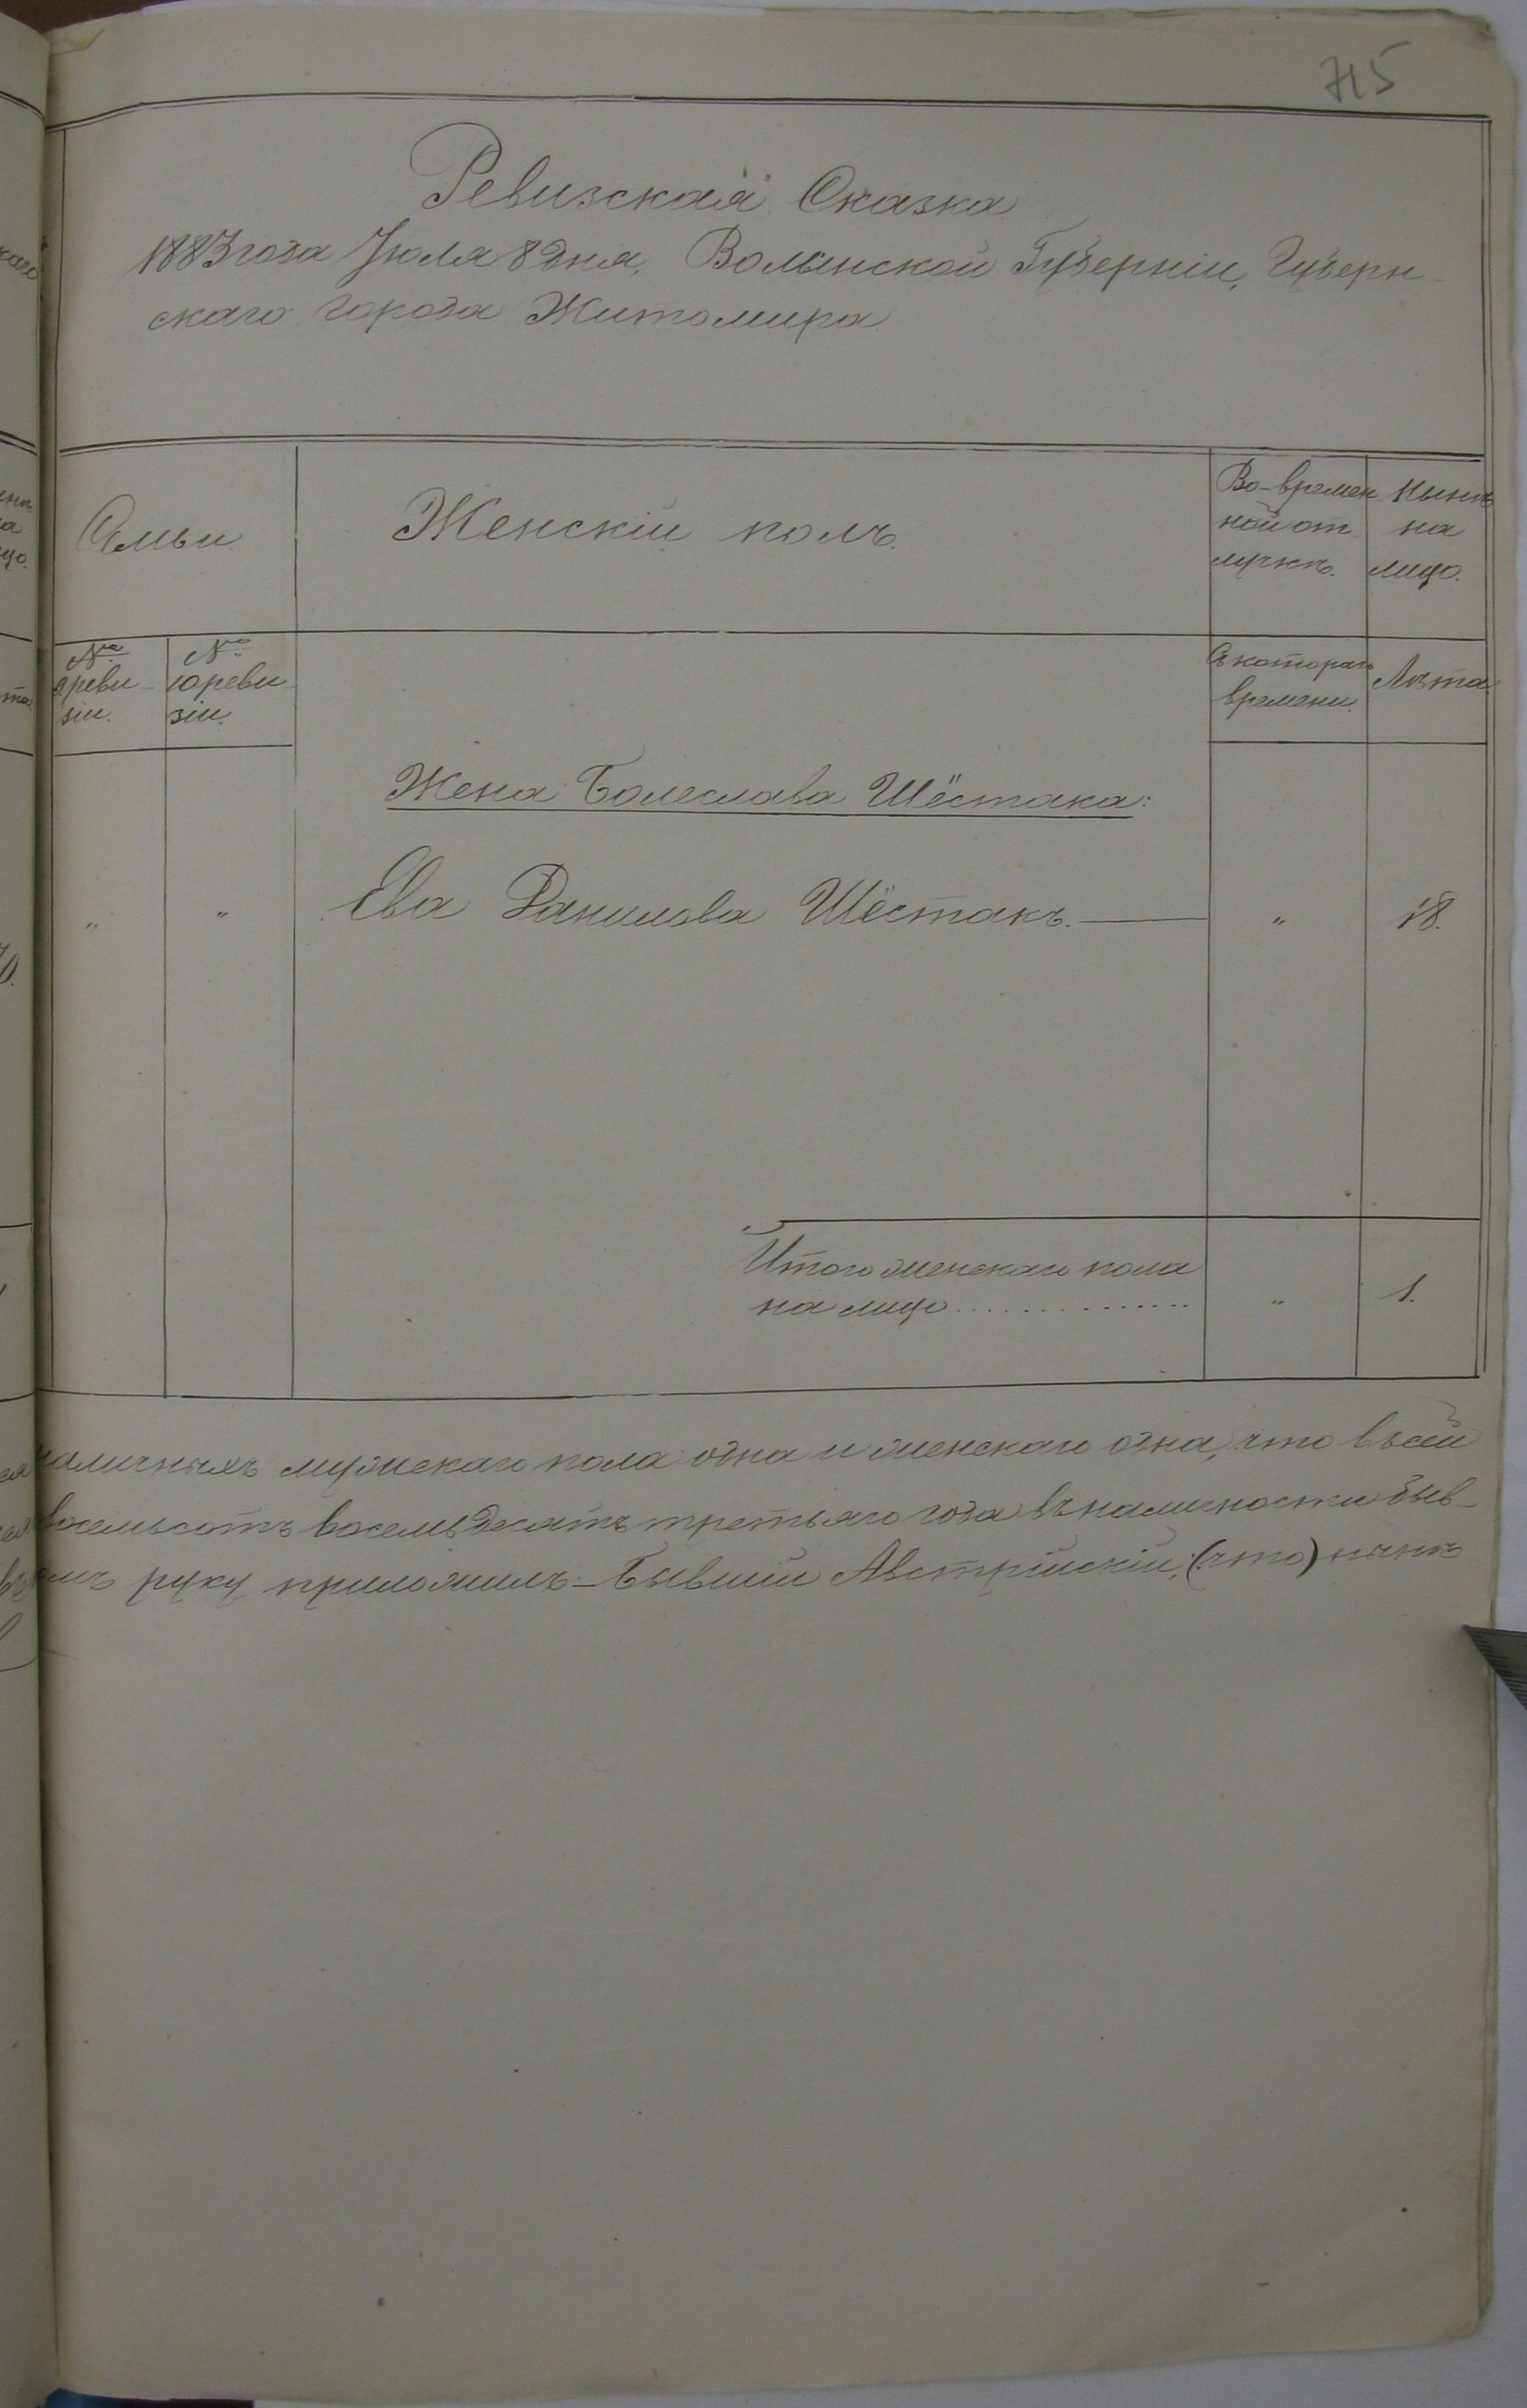 715
Ревизская Сказка
1883 года Июля 8 дня, Волынской Губерніи, Губерн-
скаго города Житомира
Семьи
Женскій полъ.
Во-времен
ной от
лучкѣ.
Нынѣ
на
лицо.
№
9 реви-
зіи.
№
10 реви-
зіи.
Съ котораго
времени.
Лѣта
Жена Болеслава Шёстака:
" " Ева Данилова Шёстакъ. " 18.
Итого женскаго пола
на лицо .............. " 1.
наличныхъ мужскаго пола одна и женскаго одна, что въ сей
восемьсотъ восемьдесятъ третьяго года въ наличности быв-
руку приложилъ - Бывшій Австрійскій, (что) нынѣ